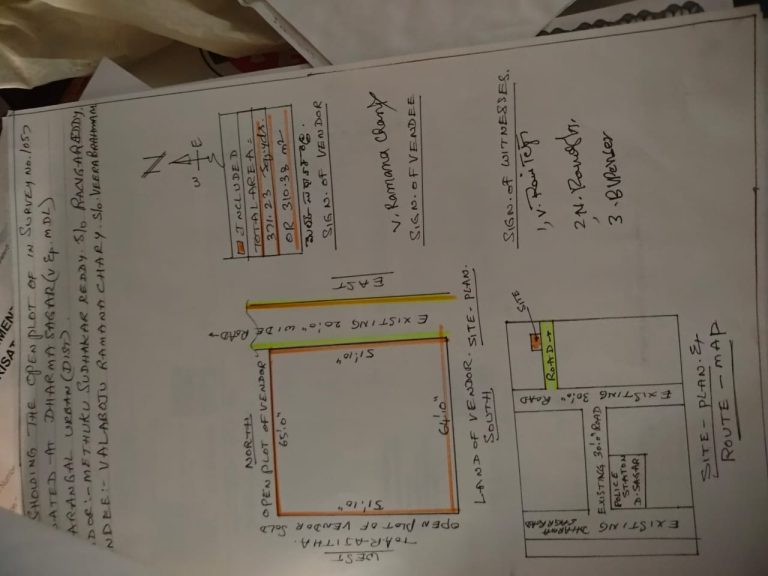 SHOLDING THE OPEN PLOT OF IN SURVEY NO. 1057
ATED - AT DHARMA SAGAR (V & MDL)
ARANGAL URBAN (DIST)
DOR:- METHUKU SUDHAKAR REDDY. S/o. RANGAREDDY,
NDEE:- VALABOJU RAMANA CHARY. S/o. VEERABRAHMAM
N
W E
INCLUDED
TOTAL AREA:-
371.23 Sq.yds.
OR 310.38 m²
SIGN. OF VENDOR
V. Ramana Chary
SIGN. OF VENDEE
SIGN. OF WITNESSES.
1, V. Ravi Teja
2 N.
3.
NORTH
OPEN PLOT OF VENDOR
65'.0"
51'.10"
51'.10"
64'.0"
EXISTING 20'.0" WIDE ROAD→
EAST
OPEN PLOT OF VENDOR SOLD
TO A. RAJITHA.
WEST
LAND OF VENDOR. SITE-PLAN.
SOUTH
SITE
ROAD→
EXISTING 30'.0" ROAD
EXISTING 30'.0" ROAD
POLICE
STATON
D. SAGAR
EXISTING
DHARMA
SAGAR ROAD
SITE-PLAN. &
ROUTE-MAP